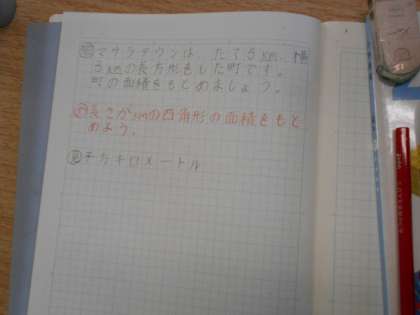 問マサラタウンは、たて5km、横
5kmの長方形をした町です。
町の面積をもとめましょう。
め長さがkmの四角形の面積をもと
めよう。
見平方キロメートル